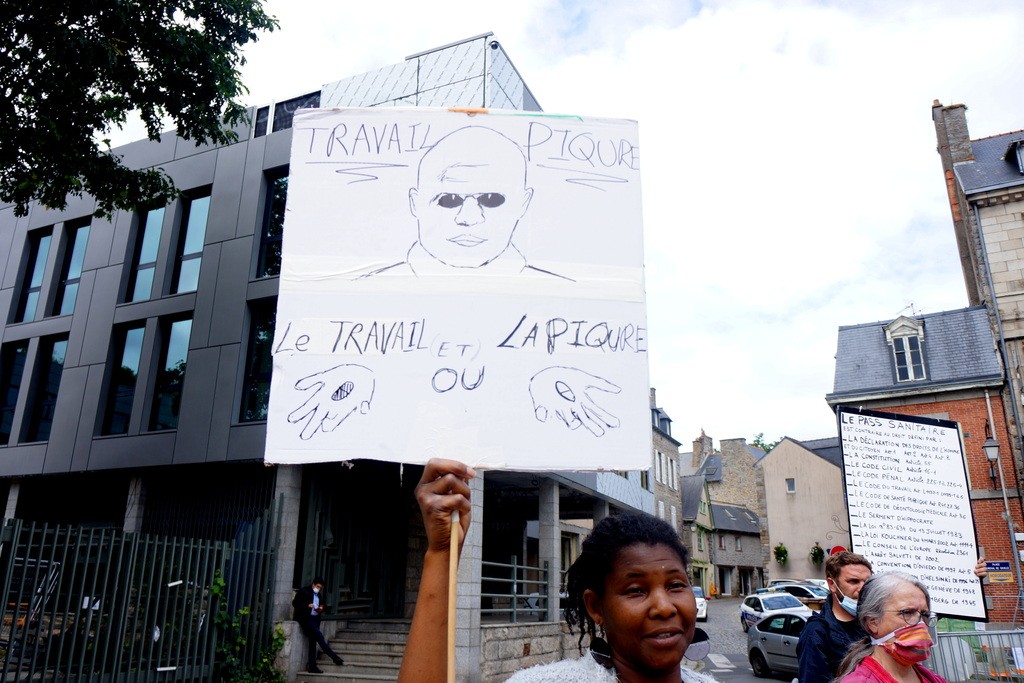 TRAVAIL PIQURE
Le TRAVAIL (ET) LA PIQURE
OU
LE PASS SANITAIRE
EST CONTRAIRE AU DROIT DÉFINI PAR :
- LA DÉCLARATION DES DROITS DE L'HOMME
ET DU CITOYEN
- LA CONSTITUTION
- LE CODE CIVIL
- LE CODE PÉNAL
- LE CODE DU TRAVAIL
- LE CODE DE SANTÉ PUBLIQUE
- LE CODE DE DÉONTOLOGIE MÉDICALE
- LE SERMENT D'HIPPOCRATE
- LA LOI N°83-634 DU 13 JUILLET 1983
- LA LOI KOUCHNER DU 4 MARS 2002
- LE CONSEIL DE L'EUROPE 2361
- L'ARRÊT SALVETI DE 2002
CONVENTION D'OVIEDO DE 1997
GENÈVE DE 1948